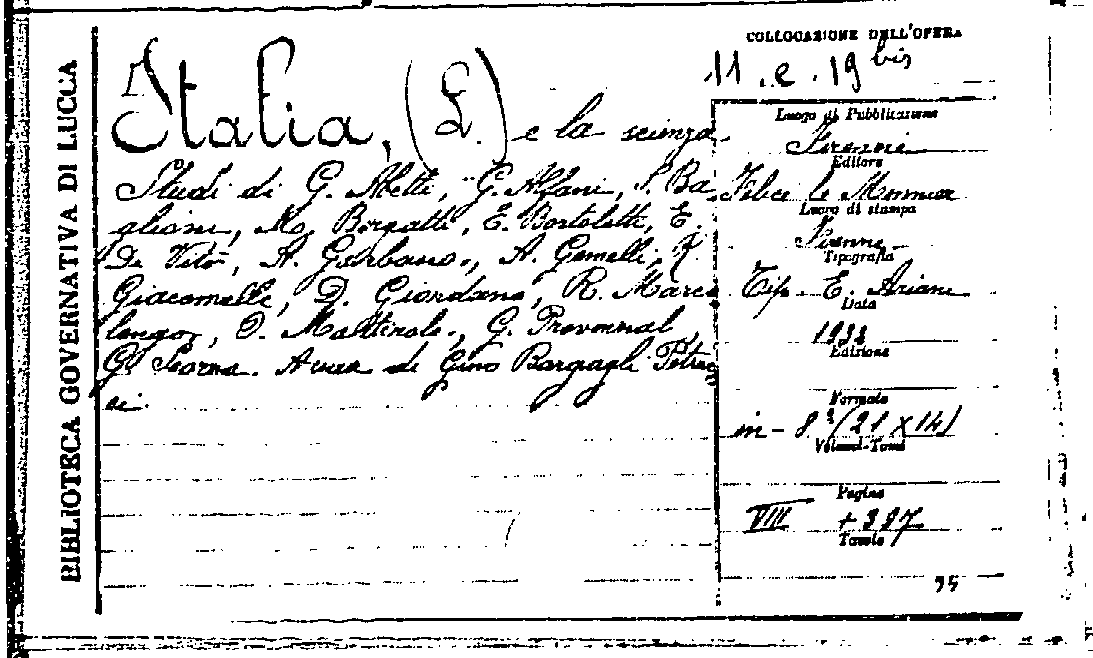 BIBLIOTECA GOVERNATIVA DI LUCCA
Italia, (L') e la scienza.
Studi di G. Abetti, G. Alfani, S. Ba
glioni, M. Borgatti, E. Bortolotti, E.
De Vito, A. Garbasso, A. Gemelli, R.
Giacomelli, D. Giordano, R. Marco
longo, O. Mattirolo, G. Provenzal,
G. Scorza. di Gino Bargagli Petruc
ci.
COLLOCAZIONE DELL'OPERA
11. e. 19 bis
Luogo di Pubblicazione
Firenze
Editore
Felice Le Monnier
Luogo di stampa
Firenze
Tipografia
Tip. E. Ariani
Data
1932
Edizione
Formato
in-8° (21 x 14)
Volumi-Tomi
Pagine
VIII + 397
Tavole